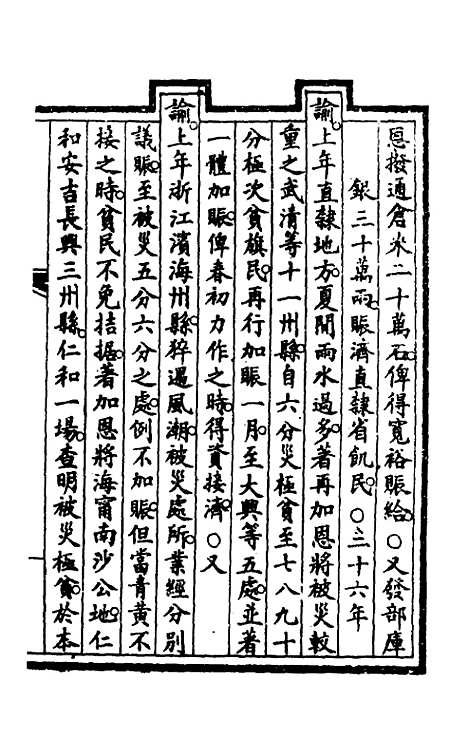 恩撥通倉米二十萬石俾得寬裕賑給○又發部庫
銀三十萬兩賑濟直隸省飢民○三十六年
諭上年直隸地方夏間雨水過多著再加恩將被災較
重之武清等十一州縣自六分災極貧至七八九十
分極次貧旗民再行加賑一月至大興等五處並著
一體加賑俾春初力作之時得資接濟○又
諭上年浙江濱海州縣猝遇風潮被災處所業經分別
議賑至被災五分六分之處例不加賑但當青黃不
接之時貧民不免拮据著加恩將海甯南沙公地仁
和安吉長興三州縣仁和一場查明被災極貧於本